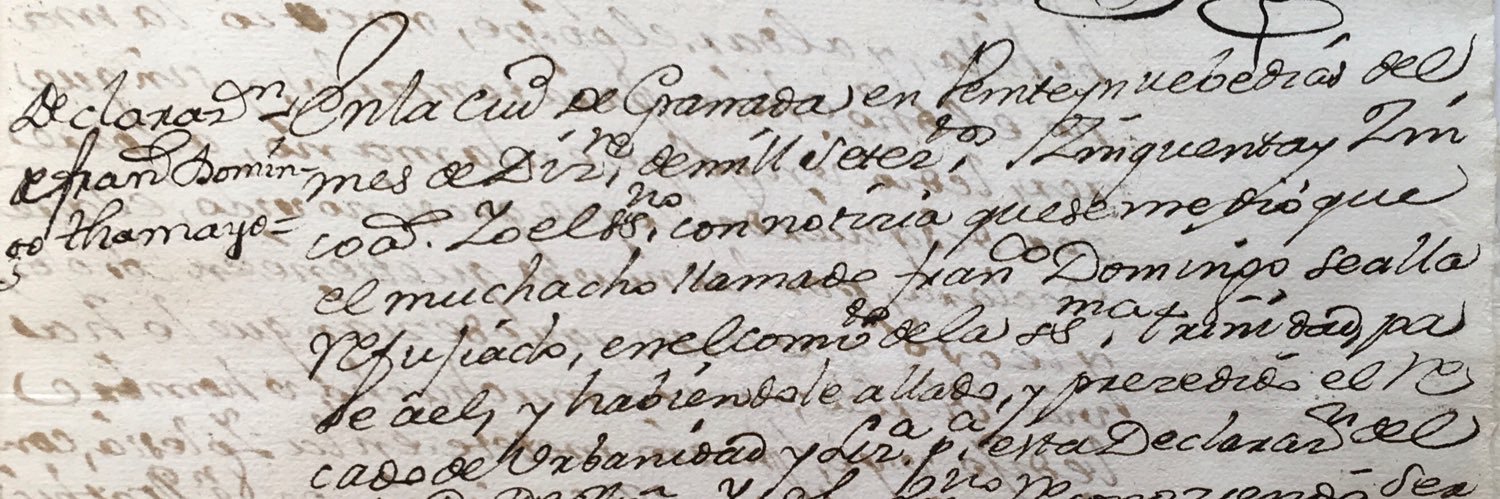 Declararon
de franco Domin-
go thamayo=
En la ciud de Granada en Veinte y nuebe dias del
mes de Dizre, de mill setezos, Zinquenta y Zin
co ad. Yo el ssno, con notizia que se me dió que
el muchacho llamado franco Domingo se alla
refujiado, en el comto de la ssma trinidad, pa
se âel, y habiendole allado, y prezedido el re
cado de Urbanidad y Liza pa esta Declararon del